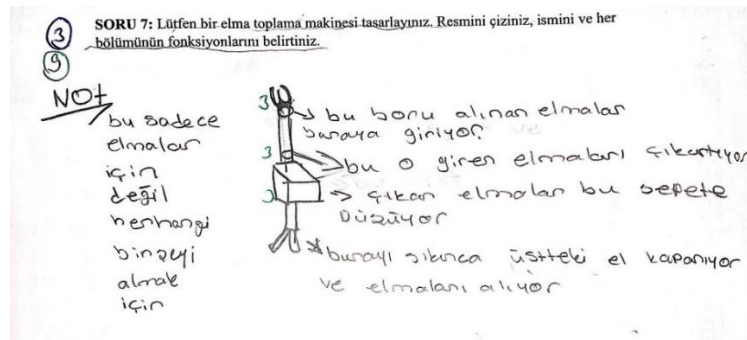 SORU 7: Lütfen bir elma toplama makinesi tasarlayınız. Resmini çiziniz, ismini ve her
bölümünün fonksiyonlarını belirtiniz.
3
9
NOt
bu sadece
elmalar
için
değil
herhangi
birşeyi
almak
için
3
bu boru alınan elmalar
buraya giriyor
3
bu o giren elmaları çıkartıyor
çıkan elmalar bu sepete
Düşüyor
burayı sıkınca üstteki el kapanıyor
ve elmaları alıyor